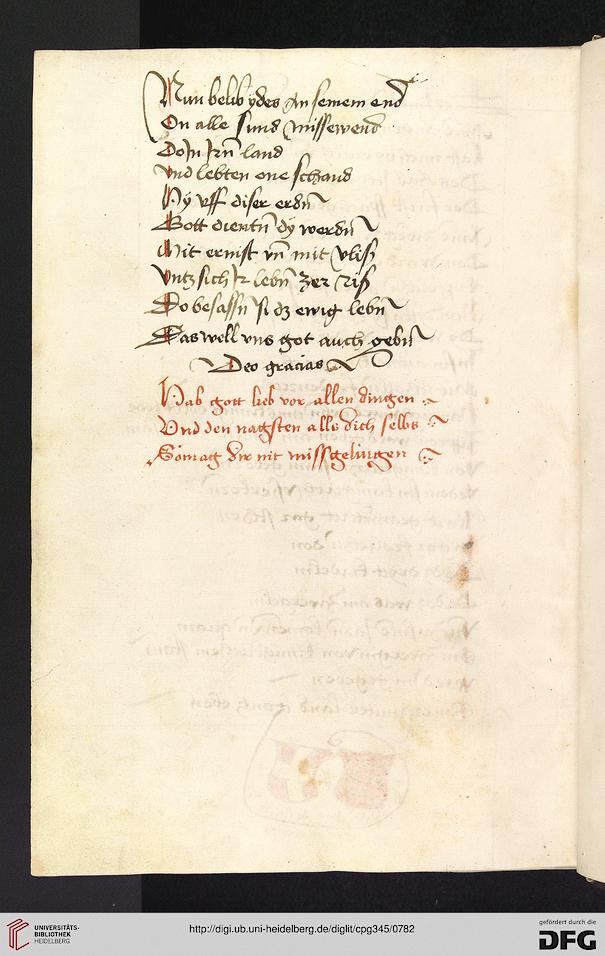 Nun belib ydes An seinem end
On alle sund missewend
Do In Irn land
vnd lebten one schand
Hÿ vff diser erdn
Gott dientn dÿ werdn
Mit ernist vn mit vliß
vntz sich Ir lebn zer riß
Do besassn si dz ewig lebn
Das well vns got auch gebn
Deo gracias
Hab gott lieb vor allen dingen
Vnd den nagsten alls dich selbs
So mag dir nit missgelingen
UNIVERSITÄTS-
BIBLIOTHEK
HEIDELBERG
http://digi.ub.uni-heidelberg.de/diglit/cpg345/0782
gefördert durch die
DFG